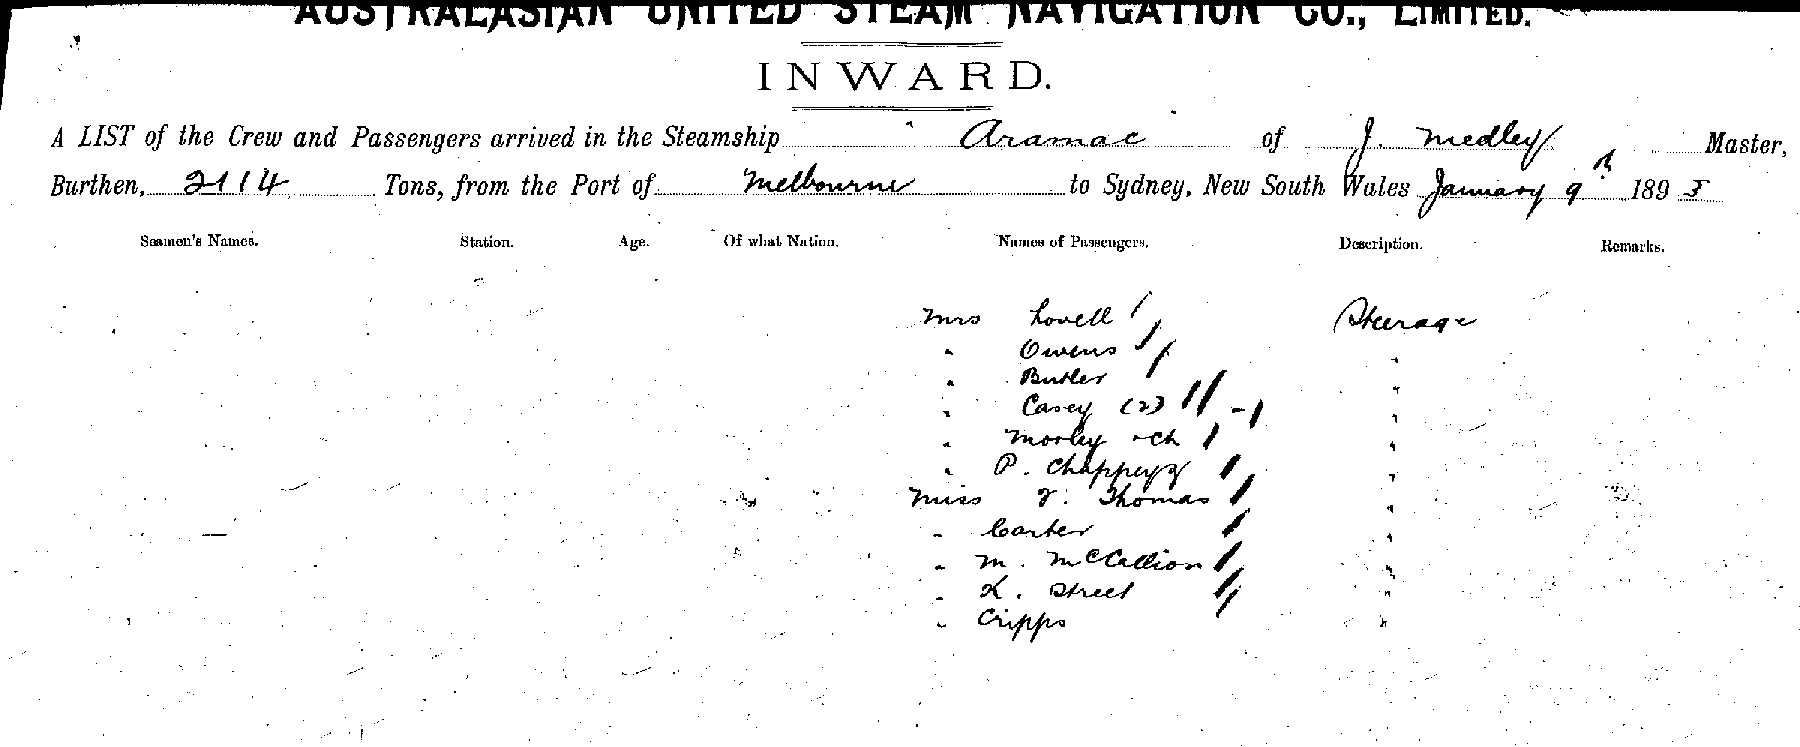 AUSTRALASIAN UNITED STEAM NAVIGATION CO., LIMITED.
INWARD.
A LIST of the Crew and Passengers arrived in the Steamship Aramac of J. Medley Master,
Burthen, 2114 Tons, from the Port of Melbourne to Sydney, New South Wales January 9th 1895
Seamen's Names. Station. Age. Of what Nation. Names of Passengers. Description. Remarks.
Mrs Lovell Steerage
" Owens "
" Butler "
" Casey (2) "
" Morley + ch "
" P. "
Miss Thomas "
" Carter "
" M. McCallion "
" K. Street "
" Cripps "